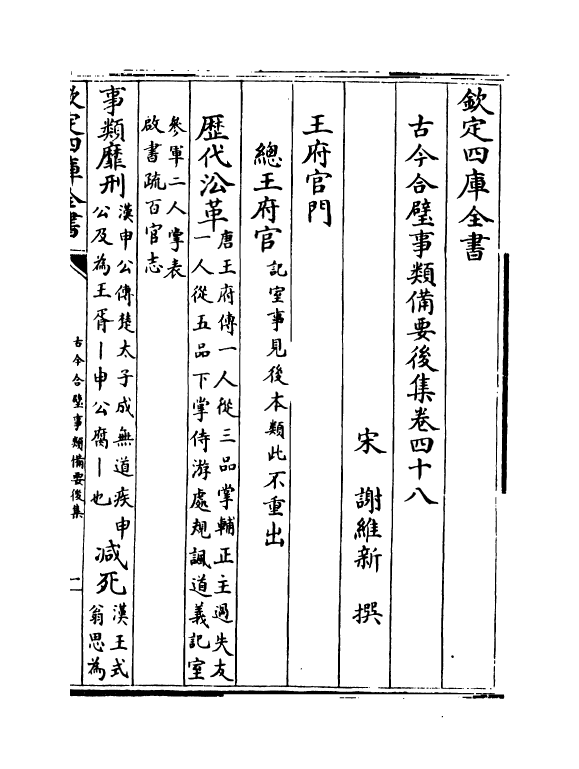 欽定四庫全書
古今合璧事類備要後集卷四十八
宋 謝維新 撰
王府官門
總王府官
記室事見後本類此不重出
歴代沿革
唐王府傅一人從三品掌輔正主過失友
一人從五品下掌侍游處規諷道義記室
叅軍二人掌表
啟書疏百官志
事類靡刑
漢申公傳楚太子成無道疾申
公及為王胥丨申公腐丨也
減死
漢王式
翁思為
欽定四庫全書
古今合璧事類備要後集
一